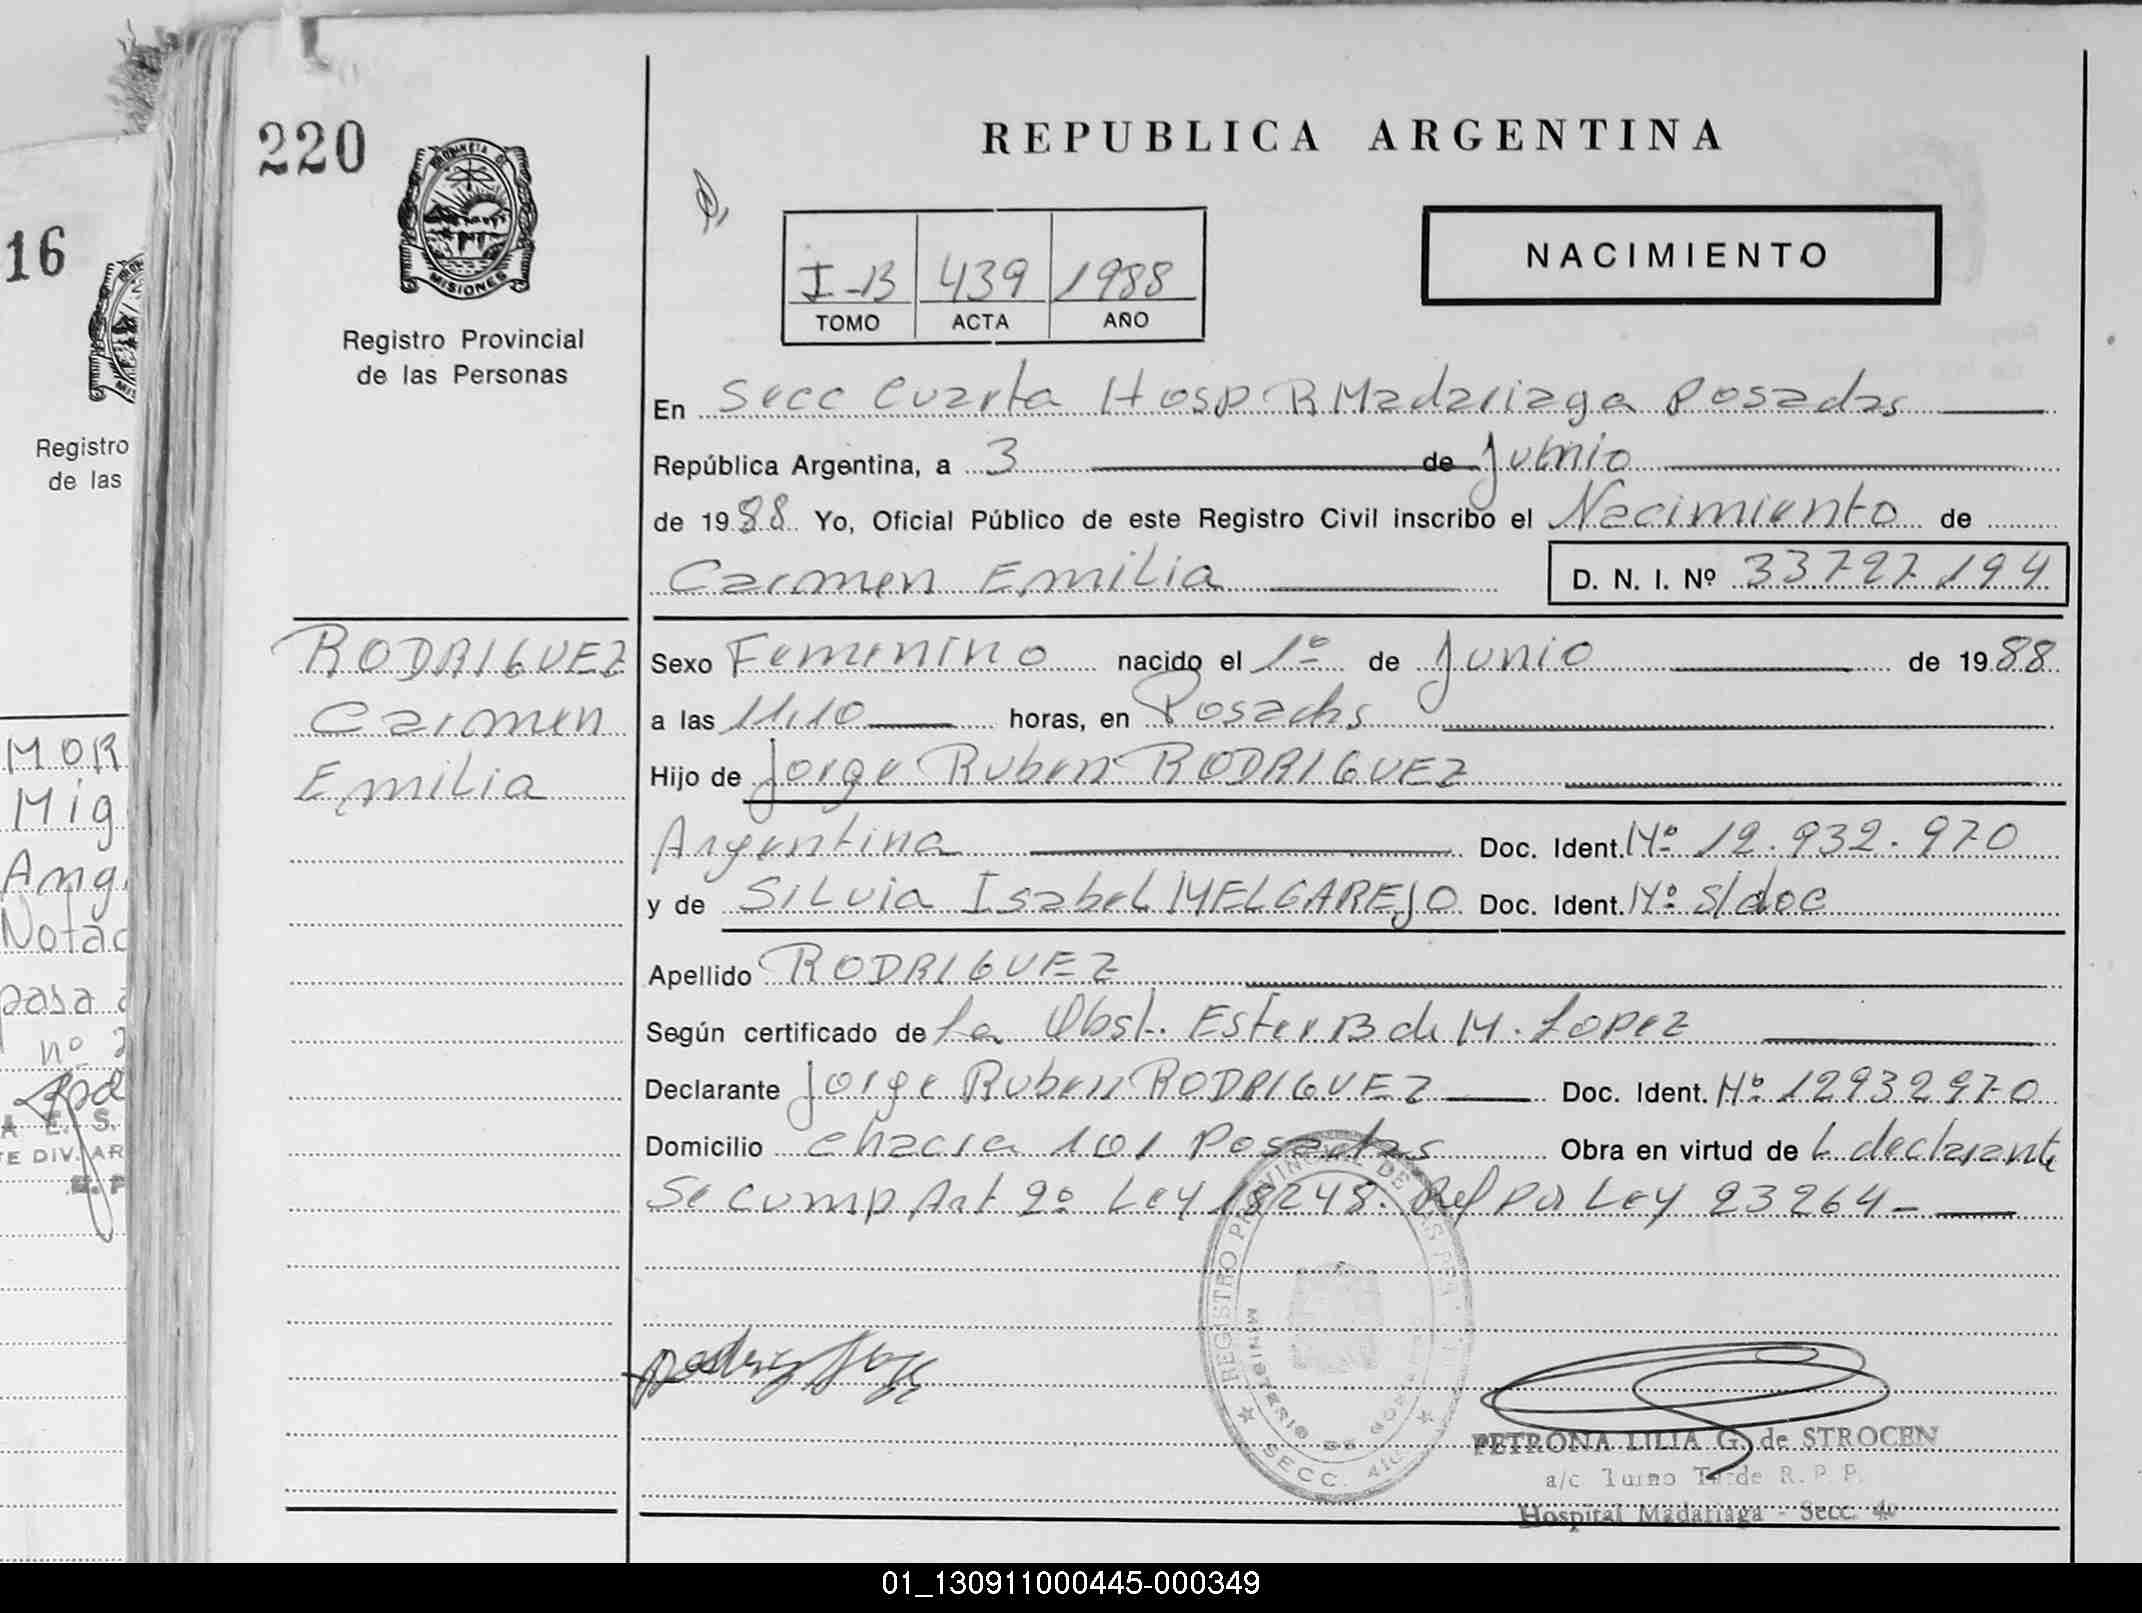 220
PROVINCIA DE
MISIONES
Registro Provincial
de las Personas
REPUBLICA ARGENTINA
I-B 439 1988
TOMO ACTA AÑO
NACIMIENTO
En Secc Cuarta Hosp R Madariaga Posadas
República Argentina, a 3 de Junio
de 1988 Yo, Oficial Público de este Registro Civil inscribo el Nacimiento de
Carmen Emilia D. N. I. Nº 33727194
RODRIGUEZ
Carmen
Emilia
Sexo Femenino nacido el 1º de Junio de 1988
a las 11.10 horas, en Posadas
Hijo de Jorge Ruben RODRIGUEZ
Argentina Doc. Ident. Nº 12.932.970
y de Silvia Isabel MELGAREJO Doc. Ident. Nº s/doc
Apellido RODRIGUEZ
Según certificado de La Obst. Ester B de M. Lopez
Declarante Jorge Ruben RODRIGUEZ Doc. Ident. Nº 12932970
Domicilio chacra 101 Posadas Obra en virtud de L declarante
Se cump Art 2º Ley 18248. Ref por Ley 23264-
REGISTRO PROVINCIAL DE LAS PERS
MINISTERIO DE GO
SECC. 4
PETRONA LILIA G. de STROCEN
a/c Turno Tarde R. P. P.
Hospital Madariaga - Secc. 4
16
Registro
de las
MOR
Mig
Nota
pasa a
nº 2
A E. S.
TE DIV. AR
01_130911000445-000349